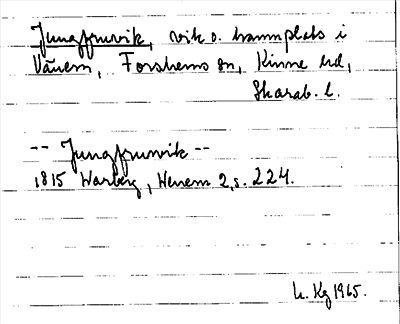 Jungfruvik, vik o. hamnplats i
Vänern, Forshems sn, Kinne hd,
Skarab. l.
-- Jungfruvik --
1815 Warberg, Wenern 2, s. 224.
L. Kg 1965.